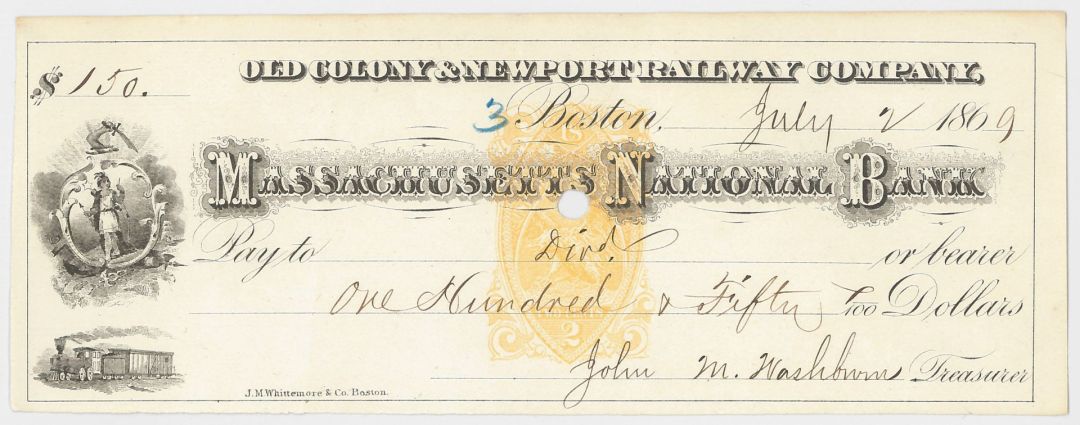 OLD COLONY & NEWPORT RAILWAY COMPANY,
$150.
3 Boston, July 2 1869
MASSACHUSETTS NATIONAL BANK
Pay to Divd. or bearer
One Hundred & Fifty /100 Dollars
2
John M. Washburn Treasurer
J.M. Whittemore & Co. Boston.